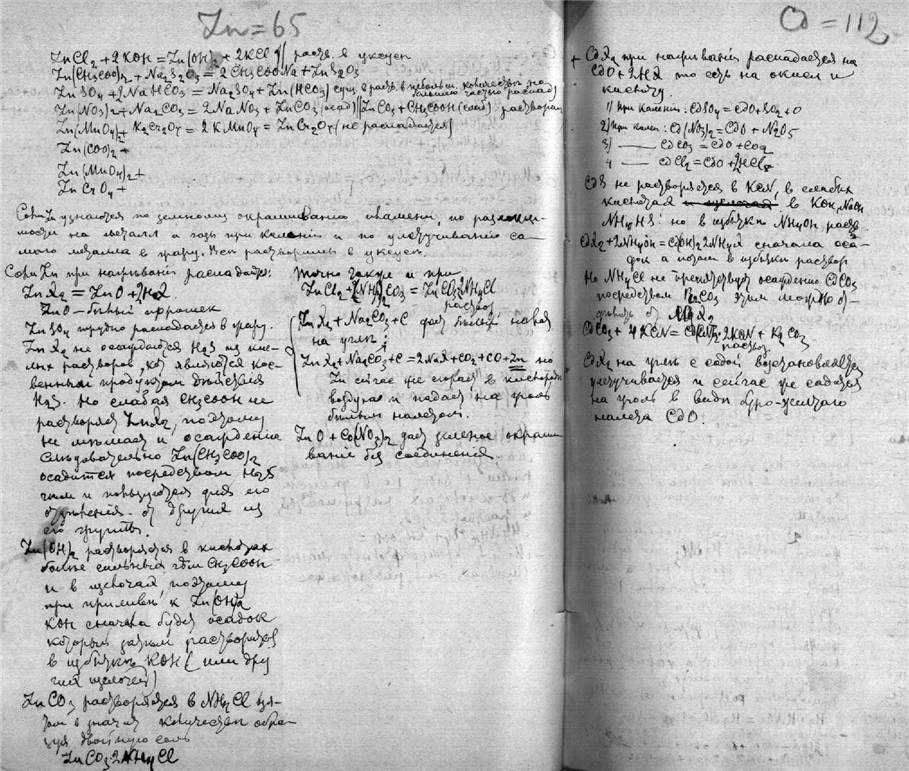 Zn=65
ZnCl2 + 2KOH = Zn(OH)2 + 2KCl // раств. в уксусн
Zn(CH3COO)2 + Na2S2O3 = 2CH3COONa + ZnS2O3
ZnSO4 + 2NaHCO3 = Na2SO4 + Zn(HCO3)
Zn(NO3)2 + Na2CO3 = 2NaNO3 + ZnCO3 (осад) // ZnCO3 + CH3COOH (слаб) растворим
Zn(MnO4)2 + K2Cr2O7 = 2KMnO4 = ZnCr2O7 (не распадается)
Zn(COO)2 +
Zn(MnO4)2 +
ZnCrO4 +
Соли Zn узнаются по зеленому окрашиванию пламени, по
на металл и при калении и по улетучиванию са-
мого металла в жару. Все растворимы в уксусн.
Соли Zn при нагревании распадаются:
ZnX2 = ZnO + 2HX
ZnO – белый порошек
ZnSO4 трудно распадается в жару.
ZnX2 не осаждаются H2S из кис-
лых растворов, кот являются кос-
венным продуктом действия
H2S. Но слабая CH3COOH не
растворяет ZnX2, поэтому
не мешает и осаждению
Следовательно Zn(CH3COO)2
осадится посредством H2S
чем и пользуются для его
отделения от других из
его группы.
Zn(OH)2 растворяется в кислотах
более сильных чем CH3COOH
и в щелочах, поэтому
при приливан. к Zn(OH)2
KOH сначала будет осадок
который затем растворяется
в избытке KOH (или дру
гих щелочей)
ZnCO3 растворяется в NH4Cl взя-
том в значит количестве обра-
зуя двойную соль
ZnCO3 2NH4Cl
точно также и при
ZnCl2 + (NH4)2CO3 = ZnCO3 2NH4Cl
раствор
ZnX2 + Na2CO3 + C даст белый налет
на угле
ZnX2 + Na2CO3 + C = 2NaX + CO2 + CO + Zn но
Zn сейчас же сгорает в кислороде
воздуха и падает на уголь
белым налетом.
ZnO + Co(NO3)2 дает зеленое окраши
вание без соединения
Cd = 112
+ CdX2 при нагревании распадается на
CdO + 2HX то есть на окисел и
кислоту.
1) при калении: CdSO4 = CdO + SO2 + O
2) при кален: Cd(NO3)2 = CdO + N2O5
3) —— CdCO3 = CdO + CO2
4 —— CdCl2 = CdO + 2HCl
CdS не растворяется в KCN, в слабых
кислотах в KOH, NaOH
NH4HS: но в избытке NH4OH, раств.
CdX2 + 2NH4OH = Cd(OH)2 2NH4X сначала оса-
док а потом в избытке раствор
Но NH4Cl не препятствует осаждению CdCO3
посредством CO3 этим можно от-
делить от MgX2
CdCO3 + 4KCN = Cd(CN)2 2KCN + K2CO3
раствор
CdX2 на угле с содой возстановляется
улетучивается и сейчас же садится
на уголь в виде буро-желтаго
налета CdO.